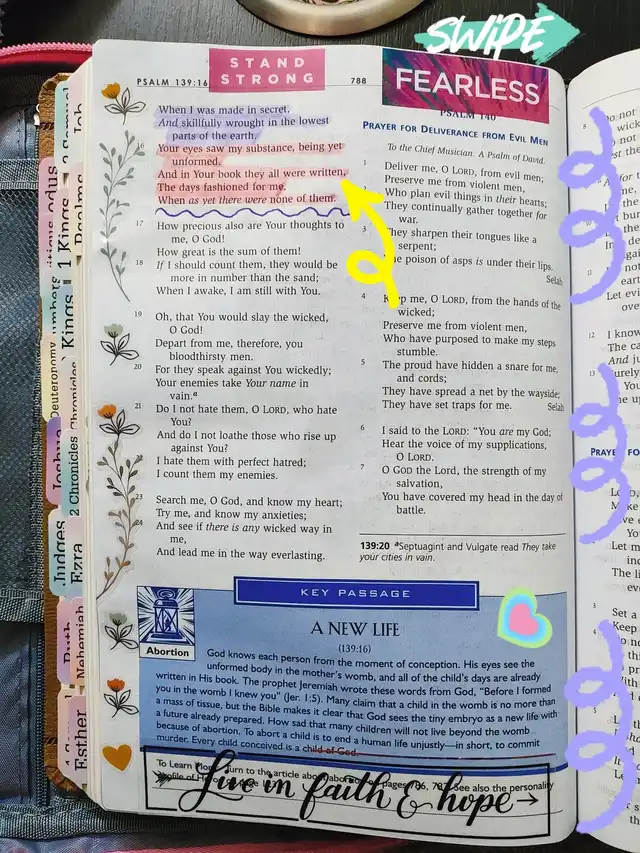 SWIPE
STAND
STRONG
FEARLESS
PSALM 139:16
788
When I was made in secret,
And skillfully wrought in the lowest
parts of the earth.
16 Your eyes saw my substance, being yet
unformed.
And in Your book they all were written,
The days fashioned for me,
When as yet there were none of them.
17 How precious also are Your thoughts to
me, O God!
How great is the sum of them!
18 If I should count them, they would be
more in number than the sand;
When I awake, I am still with You.
19 Oh, that You would slay the wicked,
O God!
Depart from me, therefore, you
bloodthirsty men.
20 For they speak against You wickedly;
Your enemies take Your name in
vain.a
21 Do I not hate them, O LORD, who hate
You?
And do I not loathe those who rise up
against You?
22 I hate them with perfect hatred;
I count them my enemies.
23 Search me, O God, and know my heart;
Try me, and know my anxieties;
24 And see if there is any wicked way in
me,
And lead me in the way everlasting.
PSALM 140
PRAYER FOR DELIVERANCE FROM EVIL MEN
To the Chief Musician. A Psalm of David.
1 Deliver me, O LORD, from evil men;
Preserve me from violent men,
2 Who plan evil things in their hearts;
They continually gather together for
war.
3 They sharpen their tongues like a
serpent;
The poison of asps is under their lips.
Selah
4 Keep me, O LORD, from the hands of the
wicked;
Preserve me from violent men,
Who have purposed to make my steps
stumble.
5 The proud have hidden a snare for me,
and cords;
They have spread a net by the wayside;
They have set traps for me. Selah
6 I said to the LORD: "You are my God;
Hear the voice of my supplications,
O LORD.
7 O GOD the Lord, the strength of my
salvation,
You have covered my head in the day of
battle.
139:20 aSeptuagint and Vulgate read They take
your cities in vain.
KEY PASSAGE
A NEW LIFE
(139:16)
Abortion
God knows each person from the moment of conception. His eyes see the
unformed body in the mother's womb, and all of the child's days are already
written in His book. The prophet Jeremiah wrote these words from God, "Before I formed
you in the womb I knew you" (Jer. 1:5). Many claim that a child in the womb is no more than
a mass of tissue, but the Bible makes it clear that God sees the tiny embryo as a new life with
a future already prepared. How sad that many children will not live beyond the womb
because of abortion. To abort a child is to end a human life unjustly—in short, to commit
murder. Every child conceived is a child of God.
To Learn More: Turn to the article about abortion pages 786, 787. See also the personality
profile of
Live in faith & hope
Job
Psalms
2 Samuel
1 Kings
Kings
Deuteronomy
1 Chronicles
2 Chronicles
Joshua
Judges
Ezra
Ruth
Nehemiah
Esther